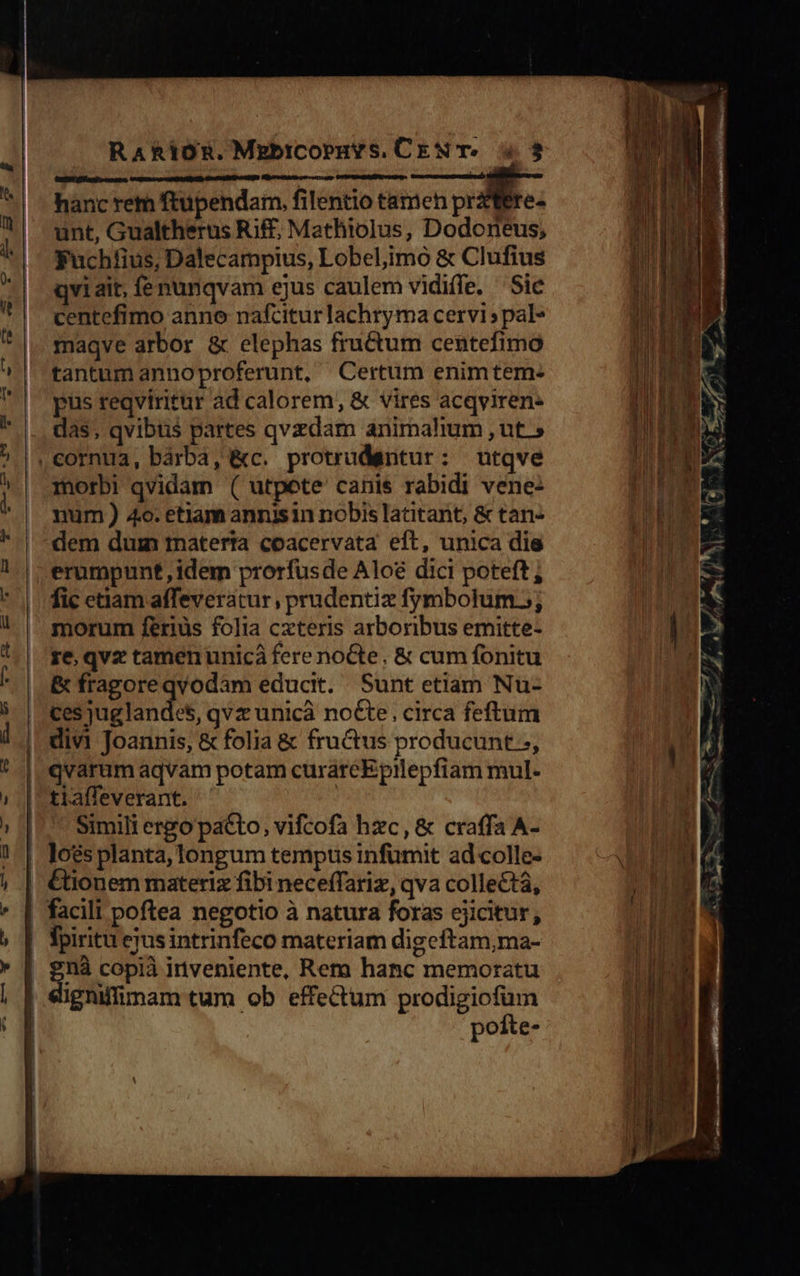 RARIOR. MEDICOPHYS. CENT. 3
hanc rem ſtupendam, ſilentio tamen prætere-
unt, Gualtherus Riff, Mathiolus, Dodoneus,
Fuchſius, Dalecampius, Lobel, imò & Cluſius
qvi ait, ſe nunqvam ejus caulem vidiſſe. Sic
centeſimo anno naſcitur lachryma cervi, pal-
maqve arbor & elephas fructum centeſimo
tantum anno proferunt. Certum enim tem-
pus reqviritur ad calorem, & vires acqviren-
das, qvibus partes qvædam animalium, ut,
cornua, barba, &c. protrudentur: utqve
morbi qvidam (utpote canis rabidi vene-
num) 40. etiam annis in nobis latitant, & tan-
dem dum materia coacervata eſt, unica die
erumpunt, idem prorſus de Aloë dici poteſt;
ſic etiam aſſeveratur, prudentiæ ſymbolum,
morum ſeriùs folia cæteris arboribus emitte-
re, qvæ tamen unicâ fere nocte, & cum ſonitu
& fragore qvodam educit. Sunt etiam Nu-
ces juglandes, qvæ unicâ nocte, circa feſtum
divi Joannis, & folia & fructus producunt,
qvarum aqvam potam curare Epilepſiam mul-
ti aſſeverant.
Simili ergo pacto, viſcoſa hæc, & craſſa A-
loës planta, longum tempus inſumit ad colle-
ctionem materiæ ſibi neceſſariæ, qva collectâ,
facili poſtea negotio à natura foras ejicitur,
ſpiritu ejus intrinſeco materiam digeſtam, ma-
gnâ copiâ inveniente, Rem hanc memoratu
digniſſimam tum ob effectum prodigioſum
poſte-